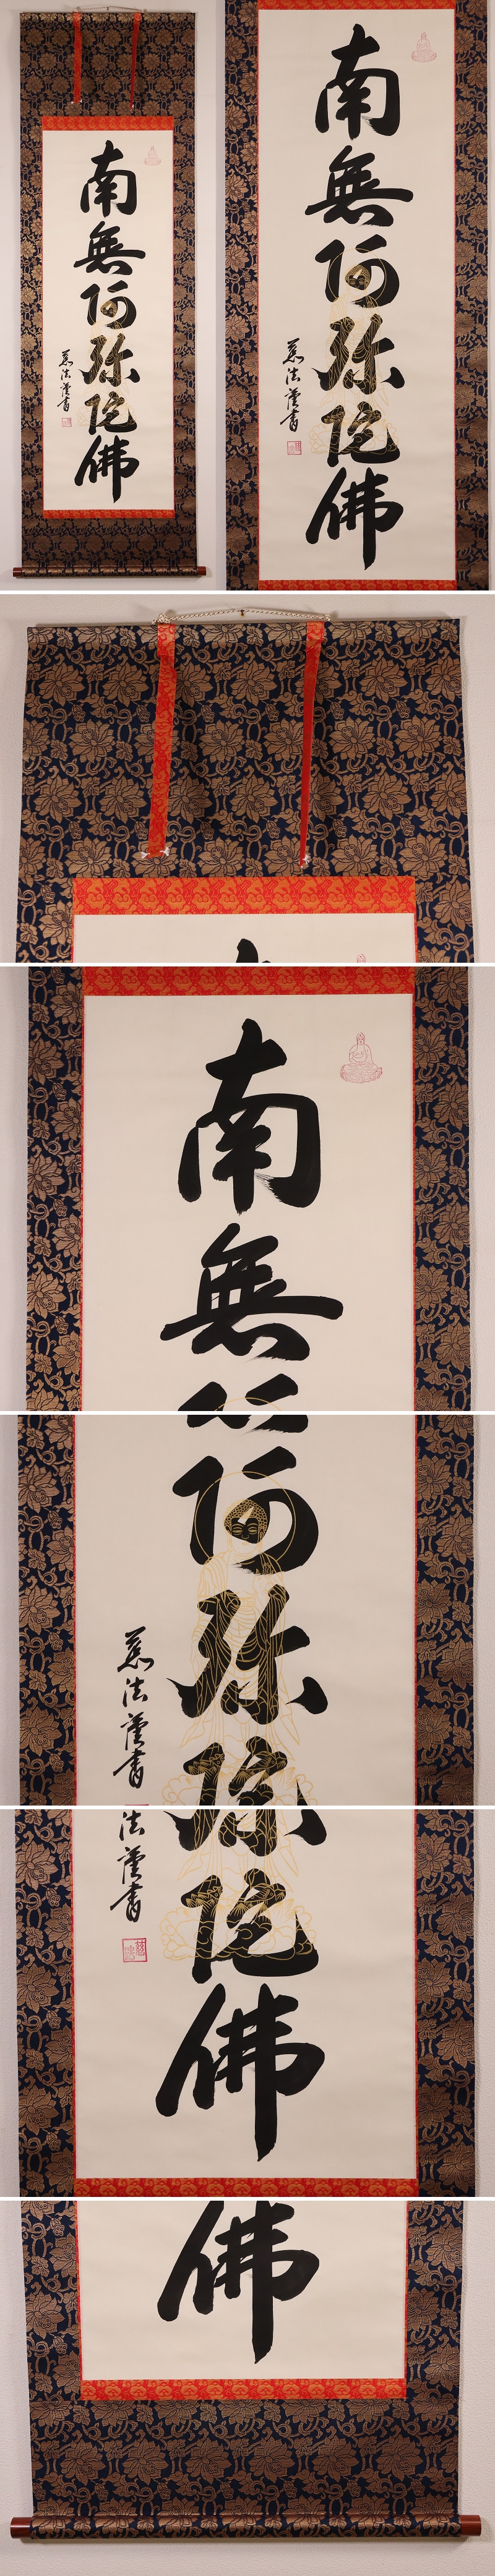 南無阿弥陀佛
慈法謹書
南無阿弥陀佛
慈法謹書
南無
阿弥
慈法謹書
陀佛
法謹書
佛